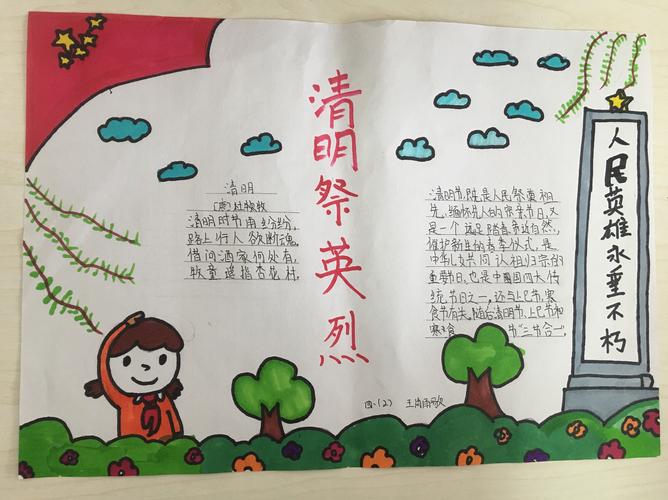 清明祭英烈
清明
[唐]杜牧
清明时节雨纷纷,
路上行人欲断魂。
借问酒家何处有,
牧童遥指杏花村。
清明节,既是人民祭奠祖
先,缅怀先人的节日,又
是一个远足踏春亲近自然,
催护新生的春季仪式,是
中华儿女共同认祖归宗的
重要日,也是中国四大传
统节日之一,还与上巳节、寒
食节有关,随后清明节、上巳节和
寒食节“三节合一”。
四.(2) 王
人民英雄永垂不朽